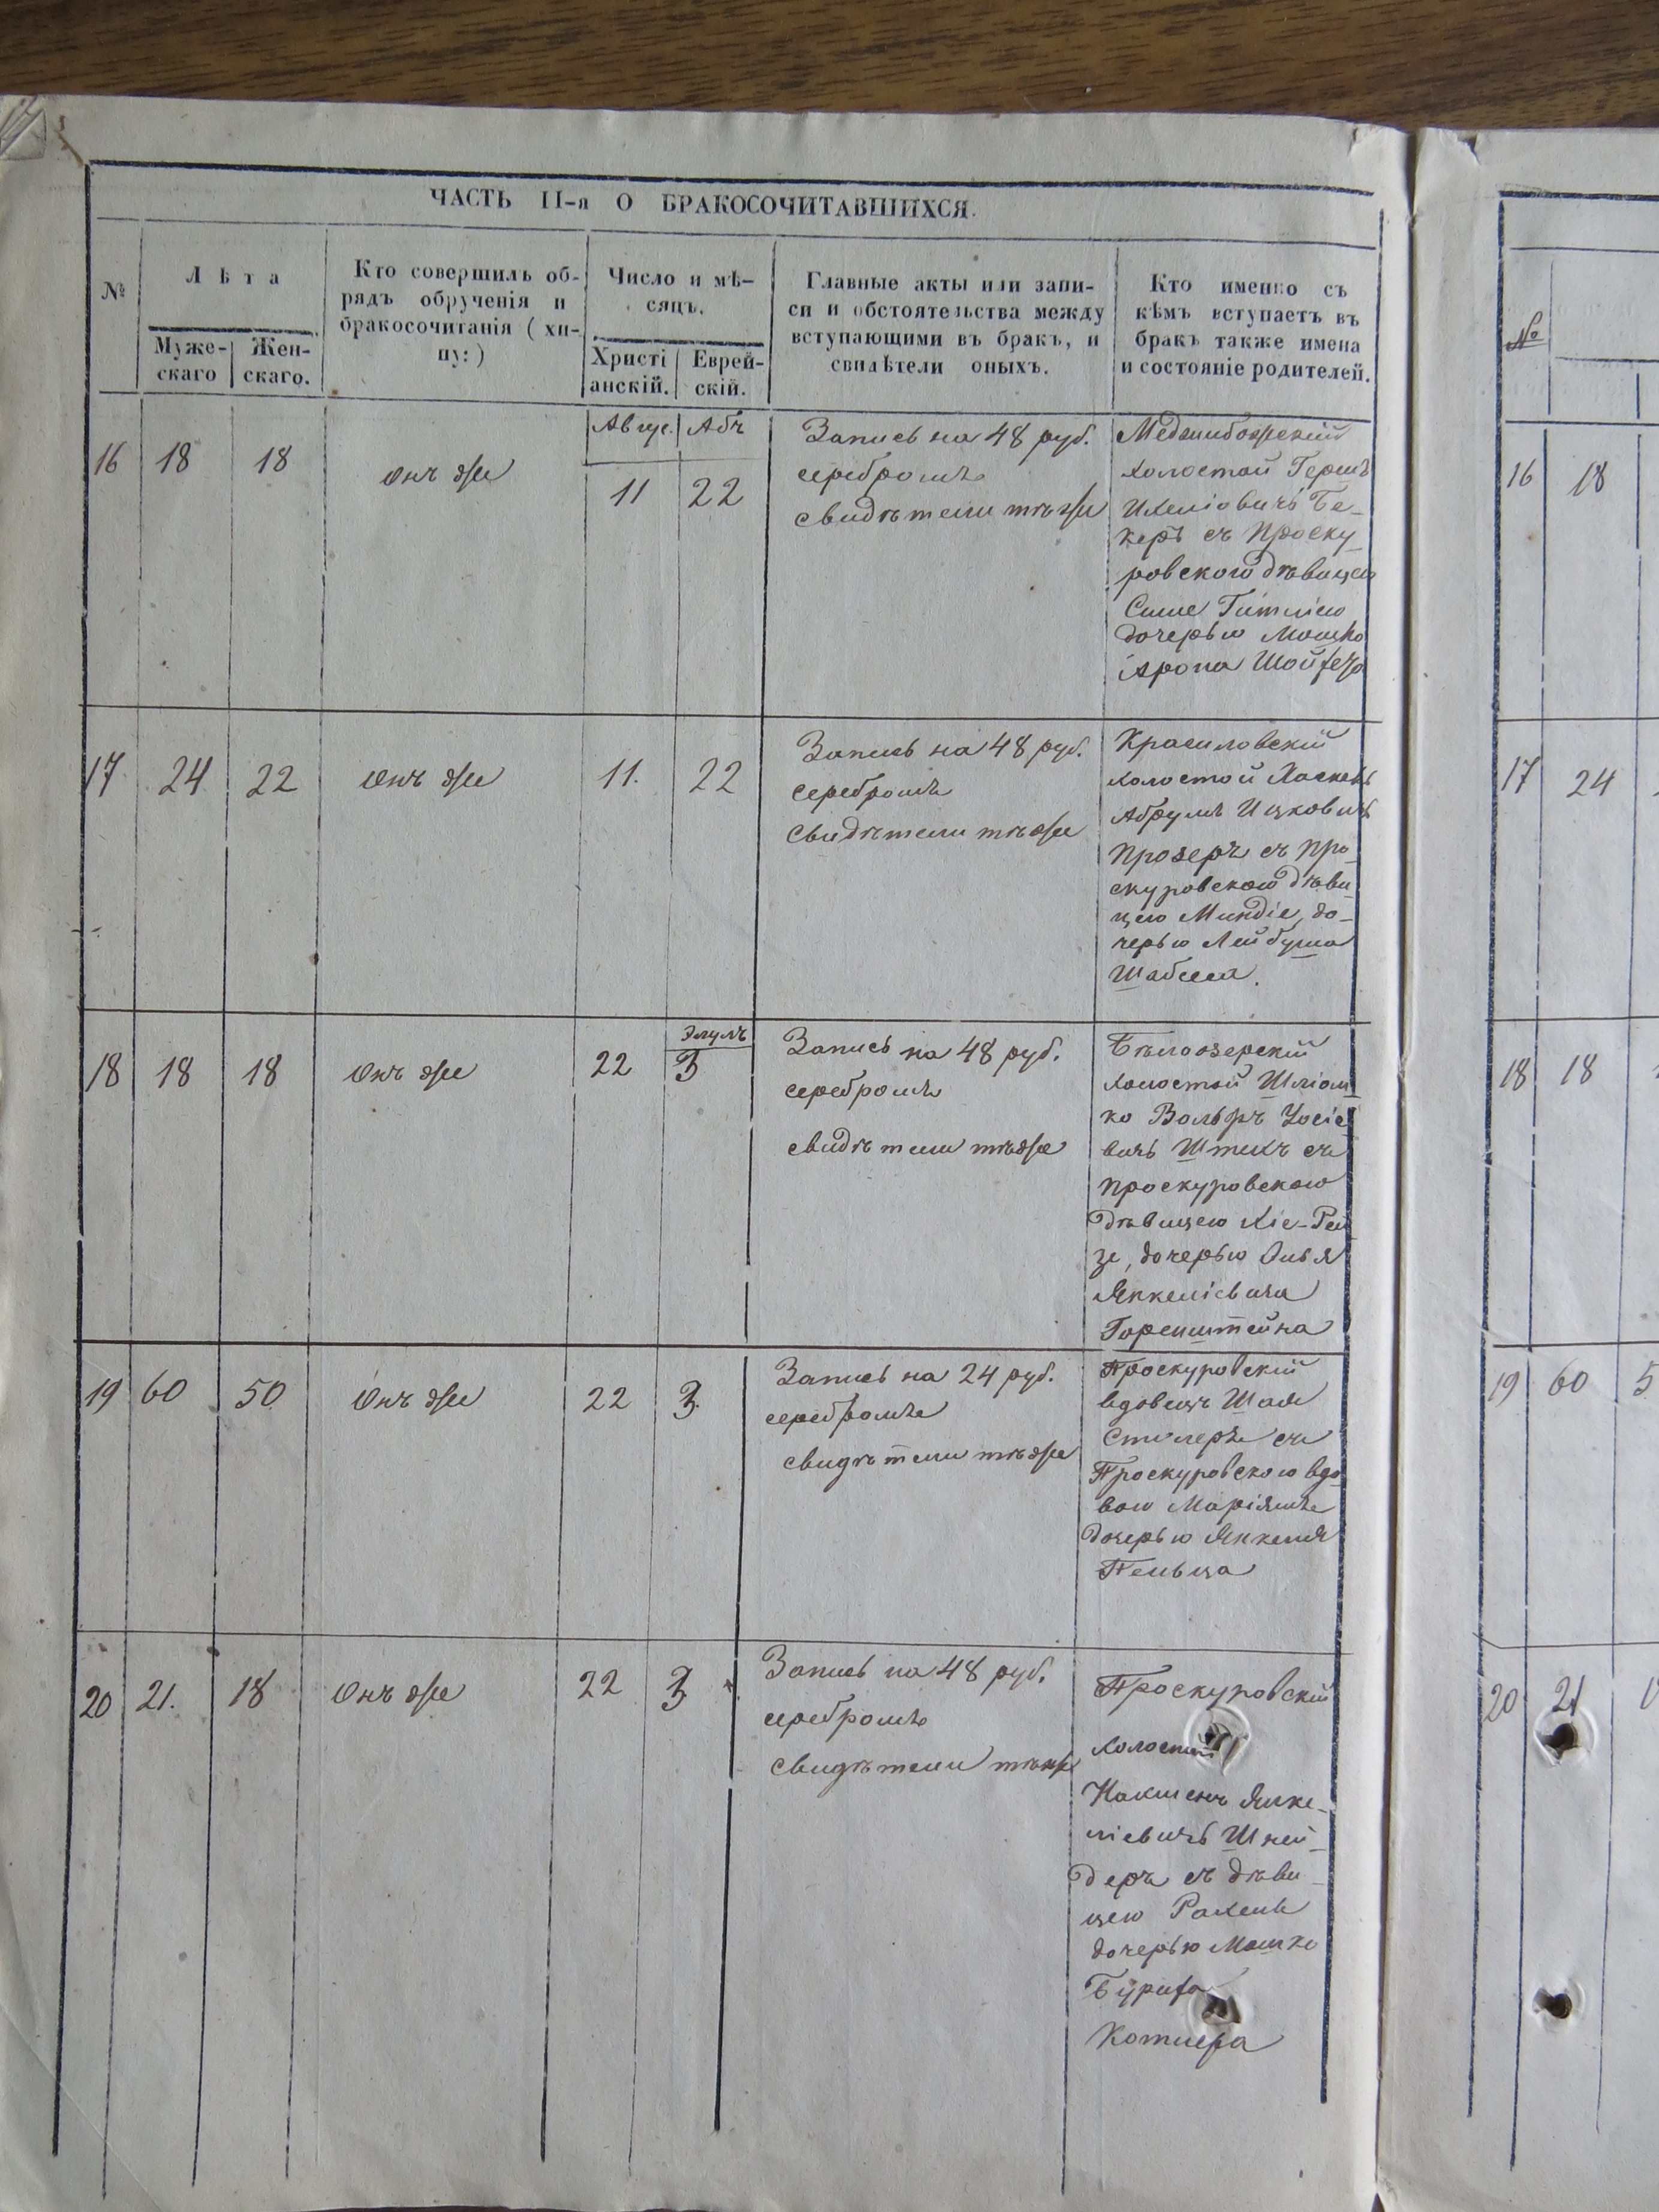 ЧАСТЬ II-я О БРАКОСОЧИТАВШИХСЯ.
№
Лѣта
Муже-
скаго
Жен-
скаго.
Кто совершилъ об-
рядъ обрученія и
бракосочитанія (хи-
пу:)
Число и мѣ-
сяцъ.
Христі
анскій.
Еврей-
скій.
Главные акты или запи-
си и обстоятельства между
вступающими въ бракъ, и
свидѣтели оныхъ.
Кто именно съ
кѣмъ вступаетъ въ
бракъ также имена
и состояніе родителей.
Авгус. Абъ
16 18 18 онъ же 11 22
Запись на 48 руб.
серебромъ
свидѣтели тѣже
Меджибожскій
холостой Гершъ
Ихелiовичъ Бе-
керъ съ Проску-
ровскою дѣвицею
Симе Гитлiею
дочерью Мошко
Арона Шойхета
17 24 22 онъ же 11. 22
Запись на 48 руб.
серебромъ
Свидѣтели тѣже
Красиловскій
холостой Хаскель
Абрумъ Ицковичъ
Прозеръ съ Про-
скуровскою дѣви-
цею Миндiе, до-
черью Лейбуша
Шабсея.
18 18 18 Онъ же 22
Элулъ
3
Запись на 48 руб.
серебромъ
свидѣтели тѣже
Бѣлозерскій
холостой Шліом
ко Вольфъ Іосіе
вичъ Штихъ съ
Проскуровскою
дѣвицею Хіе-Рей
зе, дочерью
Янкеліевича
Горенштейна
19 60 50 Онъ же 22 3.
Запись на 24 руб.
серебромъ
свидѣтели тѣже
Проскуровскій
вдовецъ Шая
Столеръ съ
Проскуровскою вдо-
вою Маріямъ
дочерью Янкеля
Пельца
20 21. 18 Онъ же 22 3
Запись на 48 руб.
серебромъ
свидѣтели тѣже
Проскуровскій
холостой
Янке-
ліевичъ Шней-
деръ съ дѣви-
цею Рахель
дочерью Мошко
Котлера
№
16 18
17 24
18 18
19 60 5
20 21 1